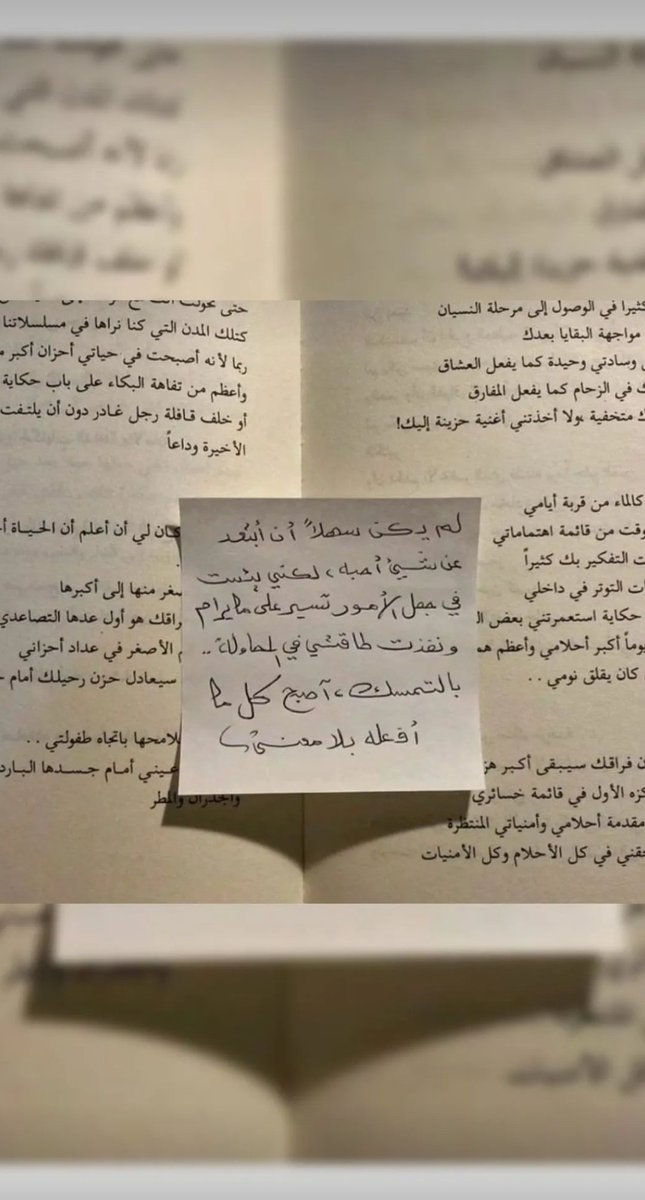 كثيرا في الوصول إلى مرحلة النسيان
مواجهة البقايا بعدك
وسادتي وحيدة كما يفعل العشاق
في الزحام كما يفعل المفارق
متخفية ،ولا أخذتني أغنية حزينة إليك!
كالماء من قربة أيامي
من قائمة اهتماماتي
التفكير بك كثيراً
التوتر في داخلي
حكاية استعمرتني بعض
أكبر أحلامي وأعظم
كان يقلق نومي . .
فراقك سيبقى أكبر
الأول في قائمة خسائري
مقدمة أحلامي وأمنياتي المنتظرة
في كل الأحلام وكل الأمنيات
كتلك المدن التي كنا نراها في مسلسلاتنا
ربما لأنه أصبحت في حياتي أحزان أكبر
وأعظم من تفاهة البكاء على باب حكاية
أو خلف قافلة رجل غادر دون أن يلتفت
الأخيرة وداعاً
لي أن أعلم أن الحياة
منها إلى أكبرها
هو أول عدها التصاعدي
الأصغر في عداد أحزاني
سيعادل حزن رحيلك أمام
باتجاه طفولتي . .
أمام جسدها
والجدران والمطر
لم يكن سهلاً أن أبتعد
عن شيئ أحبه ، لكني يئست
في جعل الأمور تسير على ما يرام
ونفذت طاقتي في المحاولة ..
بالتمسك ، أصبح كل ما
أفعله بلا معنى